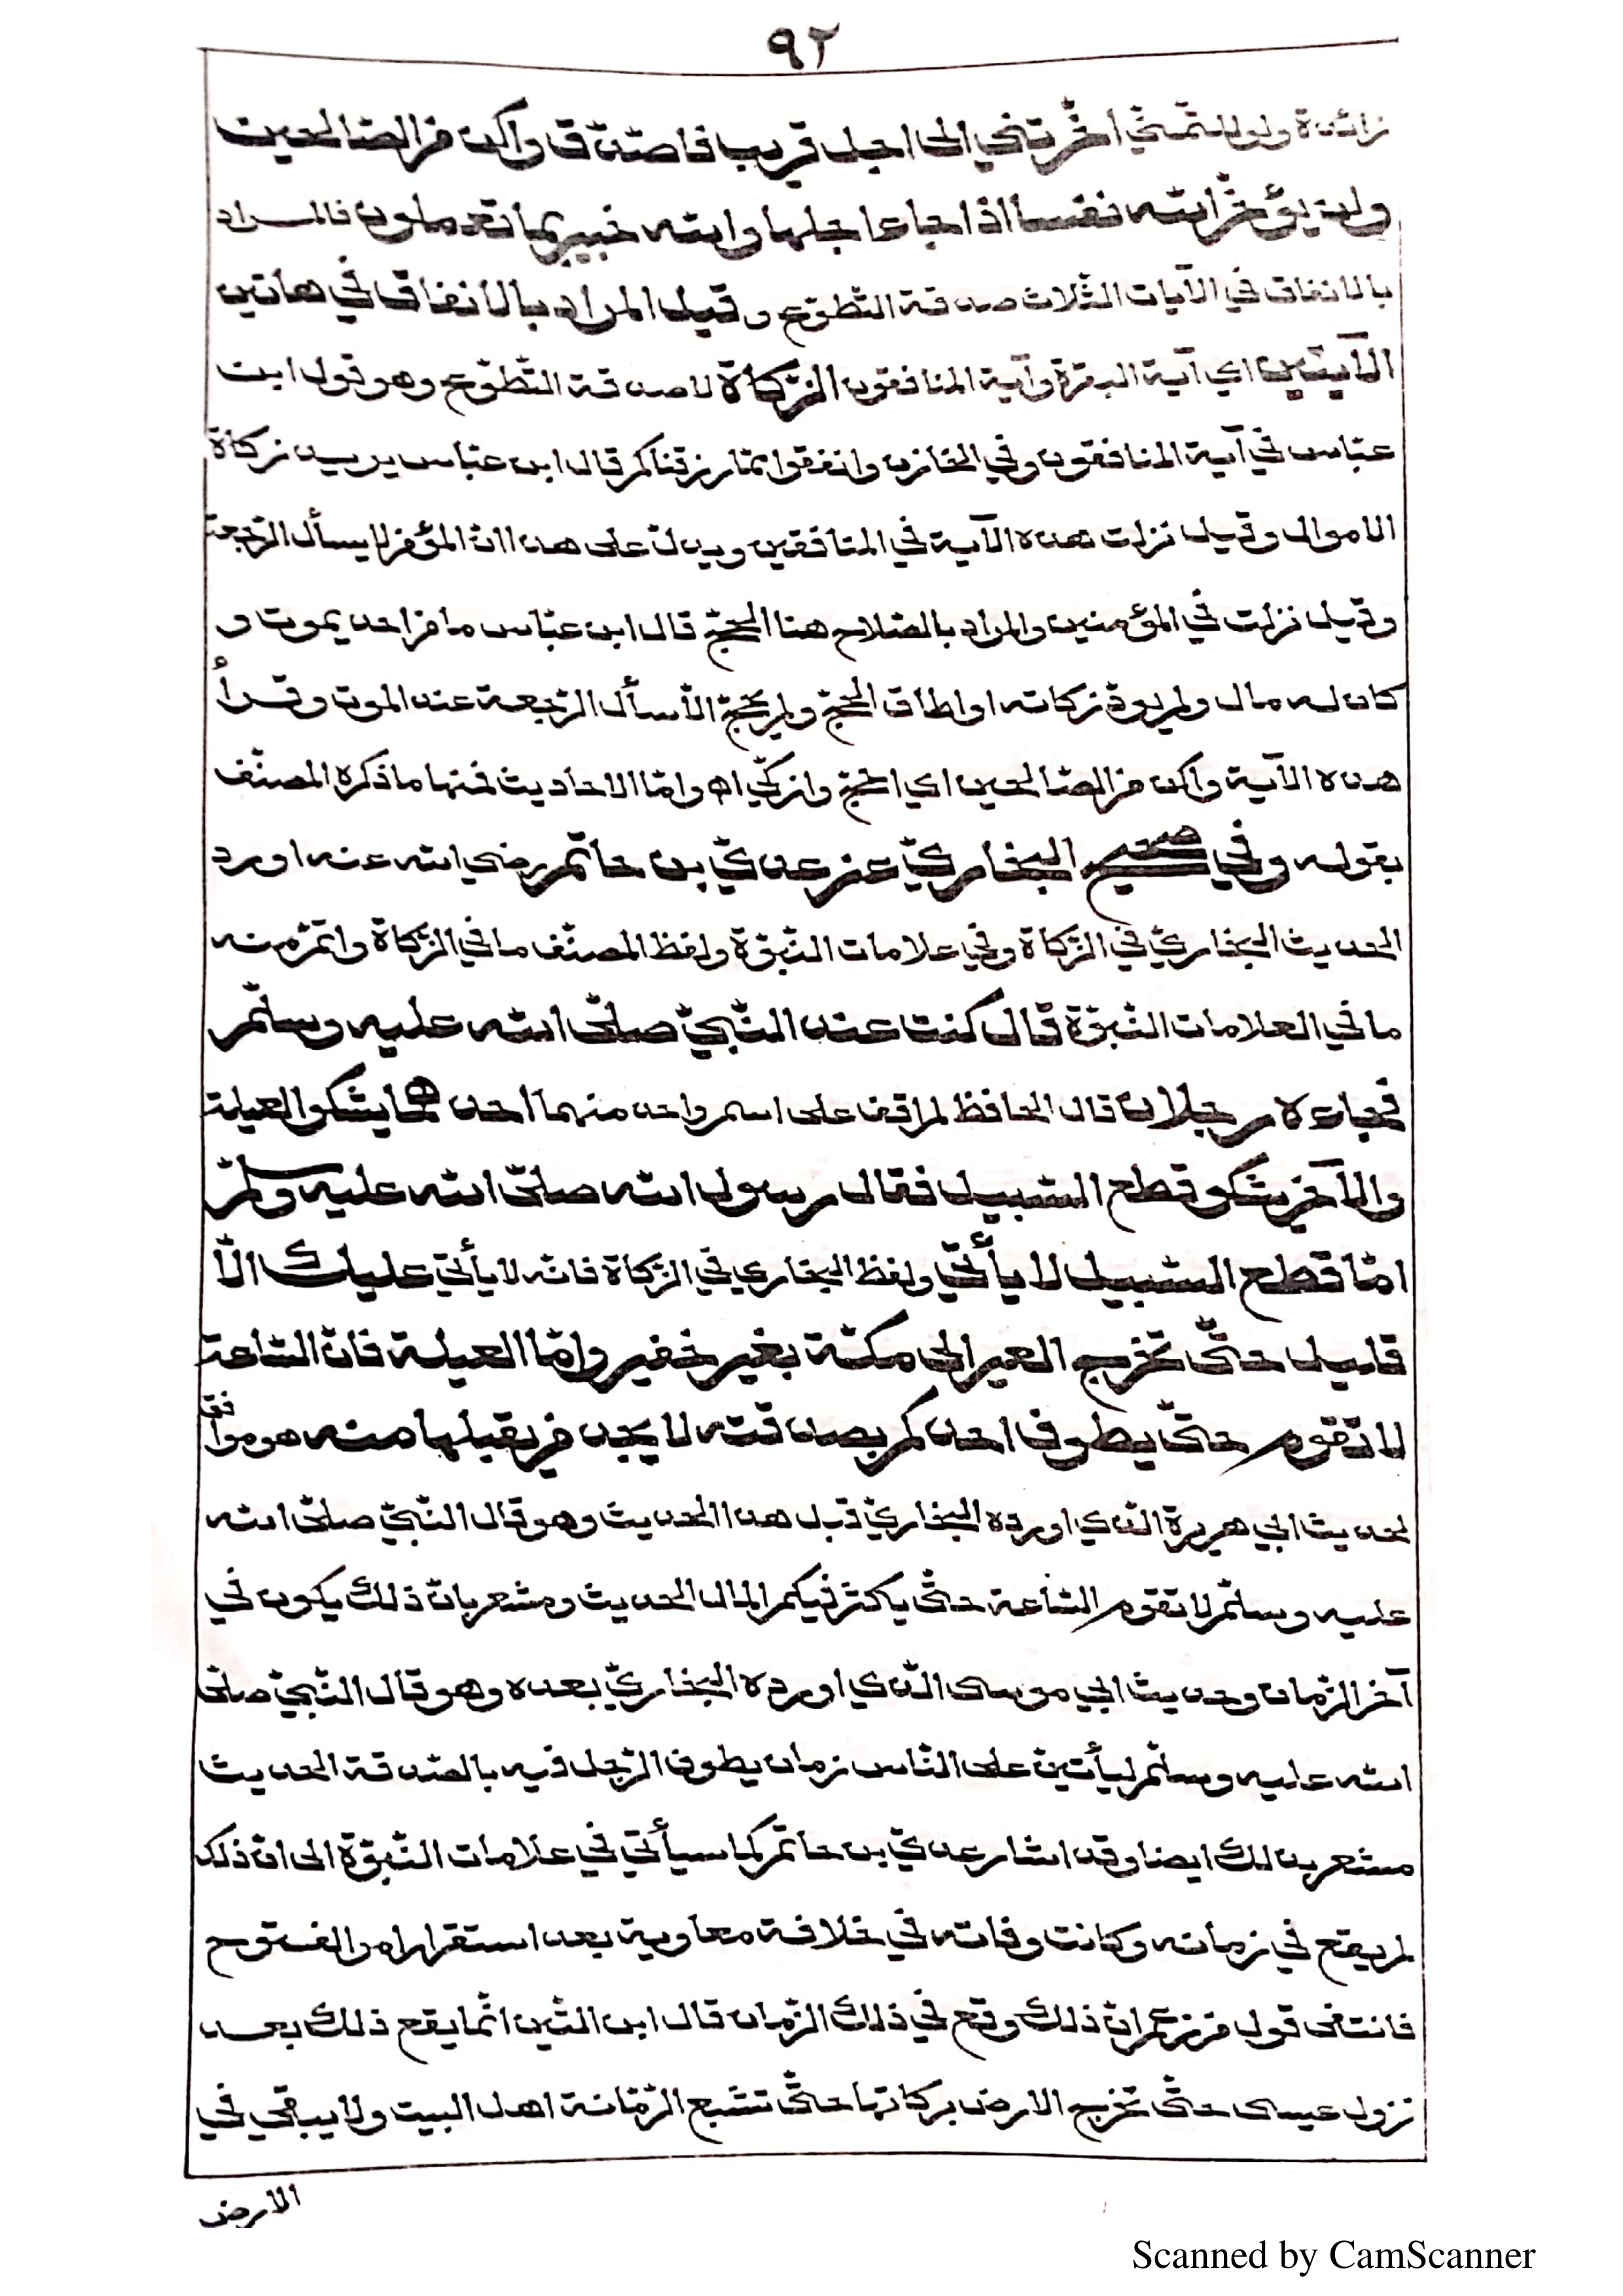 ٩٢
زائدة ولو للتمنّي أخّرتني الى اجل قريب فاصّدّق واكن من الصّالحين
ولن يؤخّر الله نفسا اذا جاء اجلها والله خبير بما تعملون فالمراد
بالانفاق في الآيات الثّلاث صدقة التّطوّع وقيل المراد بالانفاق في هاتين
الآيتين اي آية البقرة وآية المنافقون الزّكاة لا صدقة التّطوّع وهو قول ابن
عبّاس في آية المنافقون وفي الخازن وانفقوا ممّا رزقناكم قال ابن عبّاس يريد زكاة
الاموال وقيل نزلت هذه الآية في المنافقين ويدلّ على هذا انّ المؤمن لا يسأل الرّجعة
وقيل نزلت في المؤمنين والمراد بالصّلاح هنا الحجّ قال ابن عبّاس ما من احد يموت و
كان له مال ولم يودّ زكاته او اطاق الحجّ ولم يحجّ الّا سأل الرّجعة عند الموت وقرأ
هذه الآية واكن من الصّالحين اي احجّ وازكّي اه وامّا الاحاديث فمنها ما ذكره المصنّف
بقوله وفي صحيح البخاريّ عن عديّ بن حاتم رضي الله عنه اورد
الحديث البخاريّ في الزّكاة وفي علامات النّبوّة ولفظ المصنّف ما في الزّكاة واتمّ منه
ما في العلامات النّبوّة قال كنت عند النّبيّ صلّى الله عليه وسلّم
فجاءه رجلان قال الحافظ لم اقف على اسم واحد منهما احدهما يشكو العيلة
والآخر يشكو قطع السّبيل فقال رسول الله صلّى الله عليه وسلّم
امّا قطع السّبيل لا يأتي ولفظ البخاري في الزّكاة فانّه لا يأتي عليك الّا
قليل حتّى تخرج العير الى مكّة بغير خفير وامّا العيلة فانّ السّاعة
لا تقوم حتّى يطوف احدكم بصدقته لا يجد من يقبلها منه هو موافق
لحديث ابي هريرة الّذي اورده البخاريّ قبل هذا الحديث وهو قال النّبيّ صلّى الله
عليه وسلّم لا تقوم السّاعة حتّى يكثر فيكم المال الحديث ومشعر بانّ ذلك يكون في
آخر الزّمان وحديث ابي موسى الّذي اورده البخاريّ بعده وهو قال النّبيّ صلّى
الله عليه وسلّم ليأتينّ على النّاس زمان يطوف الرّجل فيه بالصّدقة الحديث
مشعر بذلك ايضا وقد اشار عديّ بن حاتم كما سيأتي في علامات النّبوّة الى انّ ذلك
لم يقع في زمانه وكانت وفاته في خلافة معاوية بعد استقرار امر الفتوح
فانتفى قول من زعم انّ ذلك وقع في ذلك الزّمان قال ابن التّين انّما يقع ذلك بعد
نزول عيسى حتّى تخرج الارض بركاتها حتّى تشبع الرّمّانة اهل البيت ولا يبقى في
الارض
Scanned by CamScanner